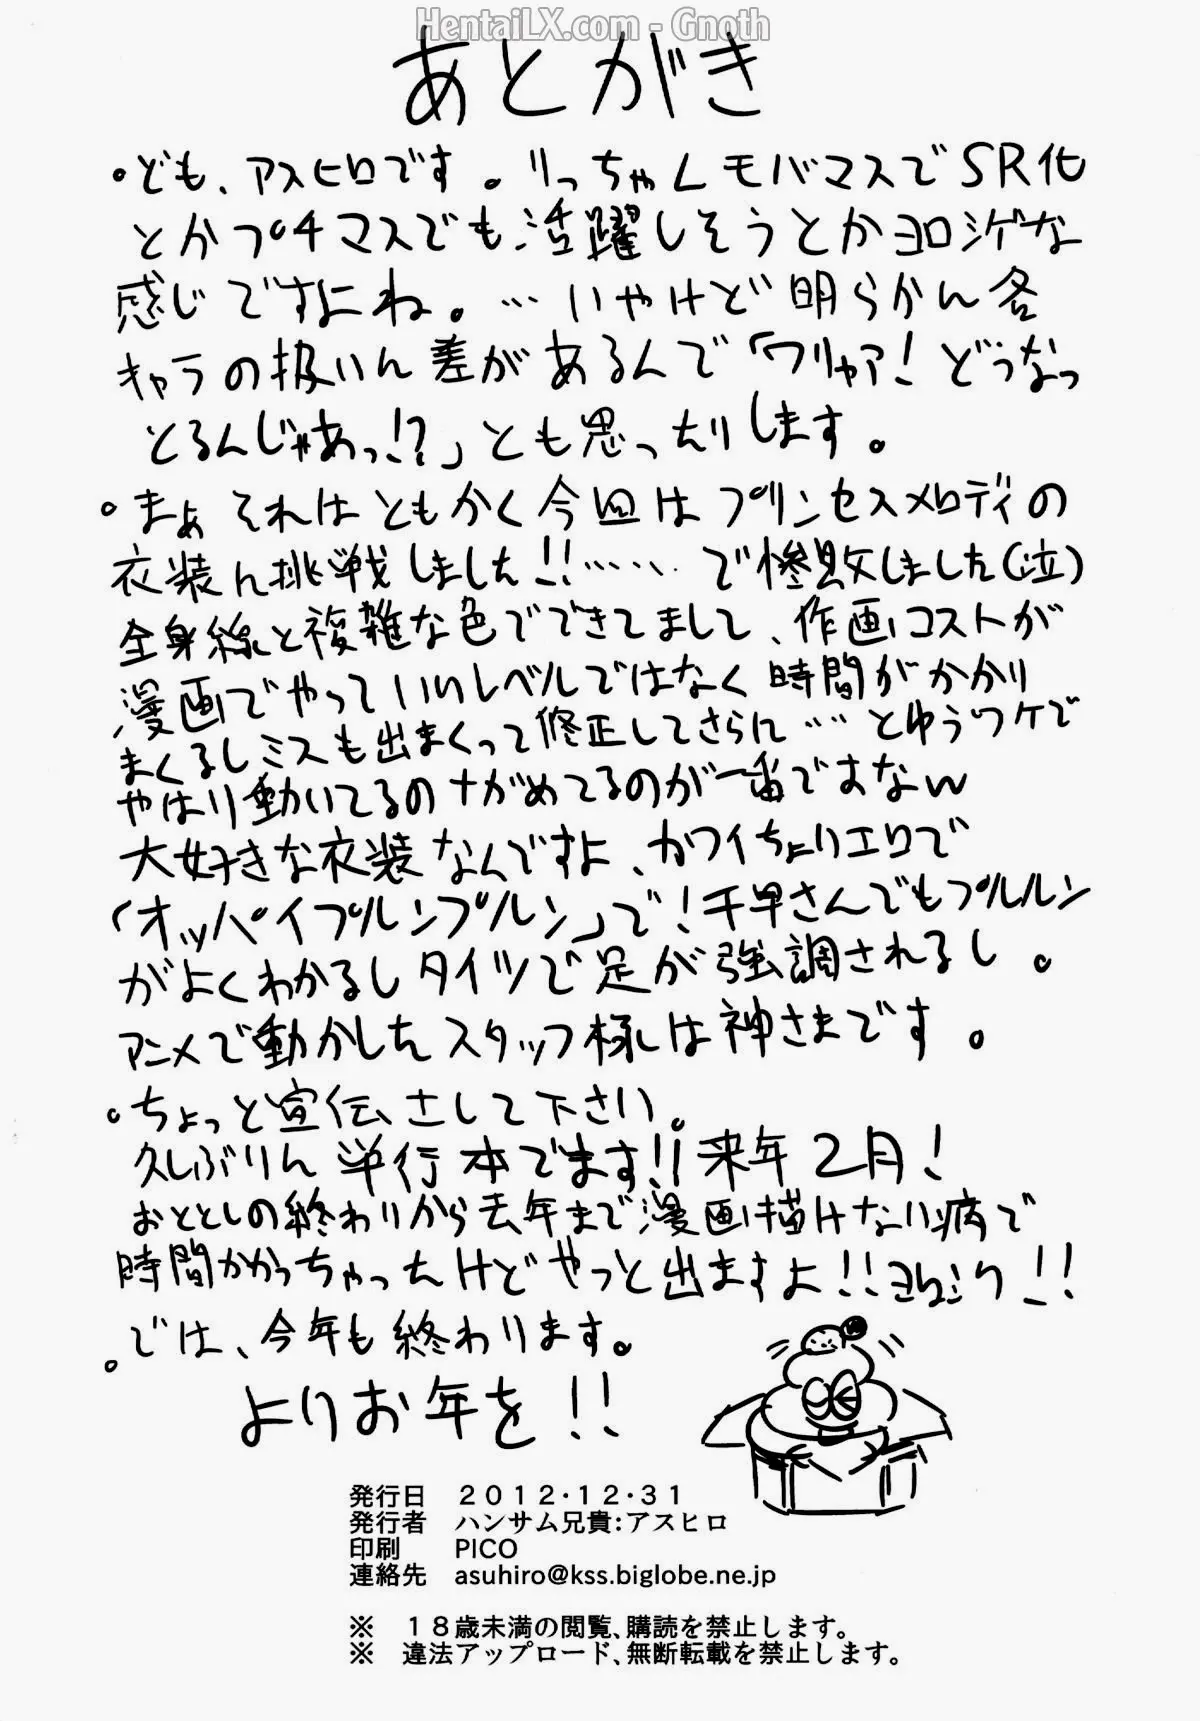 HentaiLX.com - Gnoth
あとがき
・ども、アスヒロです。りっちゃんモバマスでSR化
とかプチマスでも活躍しそうとかヨロシゲな
感じですよね。…いやけど明らかん各
キャラの扱いん差があるんで「ワリャア！どうなっ
とるんじゃあっ!?」とも思ったりします。
・まぁそれはともかく今回はプリンセスメロディの
衣装ん挑戦しました!!……で惨敗しました(泣)
全身線と複雑な色でできてまして、作画コストが
漫画でやっていいレベルではなく時間がかかり
まくるしミスも出まくって修正してさらに…とゆうワケで
やはり動いてるのながめてるのが一番ですなw
大好きな衣装なんですよ、カワイちょいエロで
「オッパイプルンプルン」で！千早さんでもプルルン
がよくわかるしタイツで足が強調されるし。
アニメで動かしたスタッフ様は神さまです。
・ちょっと宣伝さして下さい。
久しぶりん単行本でます!!来年2月！
おととしの終わりから去年まで漫画描けない病で
時間かかっちゃったけどやっと出ますよ!!ヨロシク!!
・では、今年も終わります。
よりお年を!!
発行日　2012・12・31
発行者　ハンサム兄貴:アスヒロ
印刷　PICO
連絡先　asuhiro@kss.biglobe.ne.jp
※　18歳未満の閲覧、購読を禁止します。
※　違法アップロード、無断転載を禁止します。